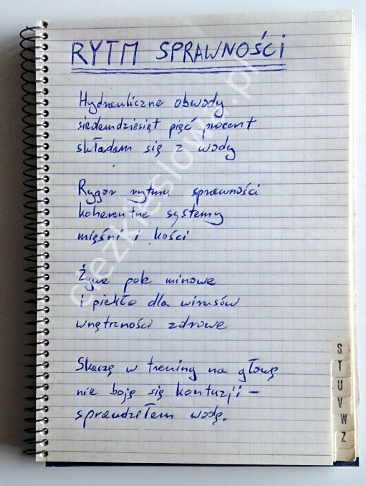 RYTM SPRAWNOŚCI
Hydrauliczne obwody
siedemdziesiąt pięć procent
składam się z wody
Rygor rytmu sprawności
koherentne systemy
mięśni i kości
Żywe pole minowe
i piekło dla wirusów
wnętrzności zdrowe
Skaczę w trening na głowę
nie boję się kontuzji –
sprawdziłem wodę.
S
T
U
V
W
Z